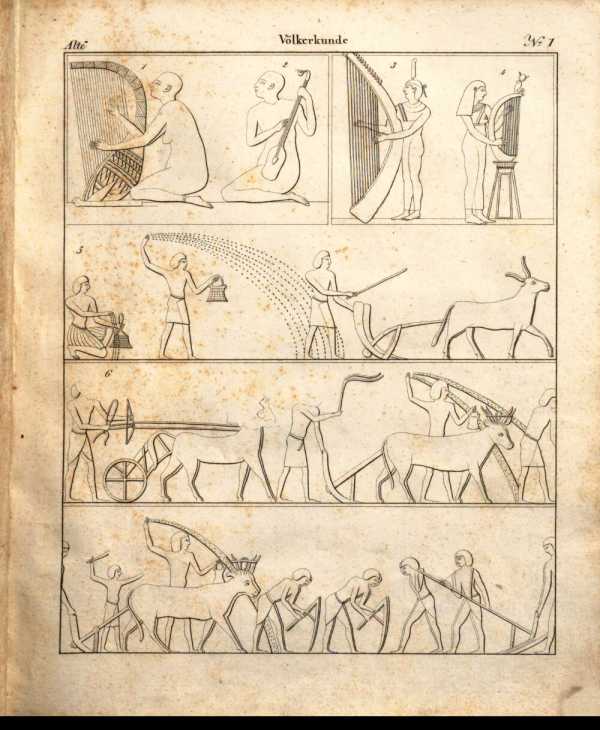 Alte Völkerkunde № 1
1 2 3 4
5
6